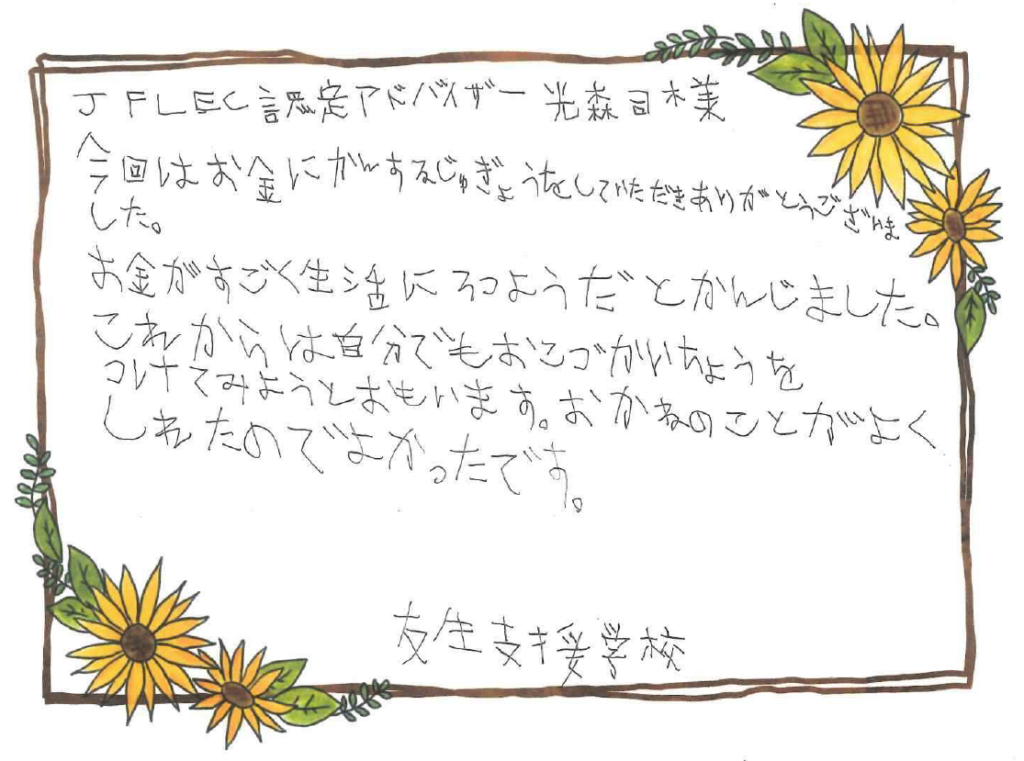 JFLEC認定アドバイザー 光森司木様
今回はお金にがんするじゅぎょうをしていただきありがとうございま
した。
お金がすごく生活にひつようだとかんじました。
これからは自分でもおこづかいちょうを
つけてみようとおもいます。おかねのことがよく
しれたのでよかったです。
友生支援学校